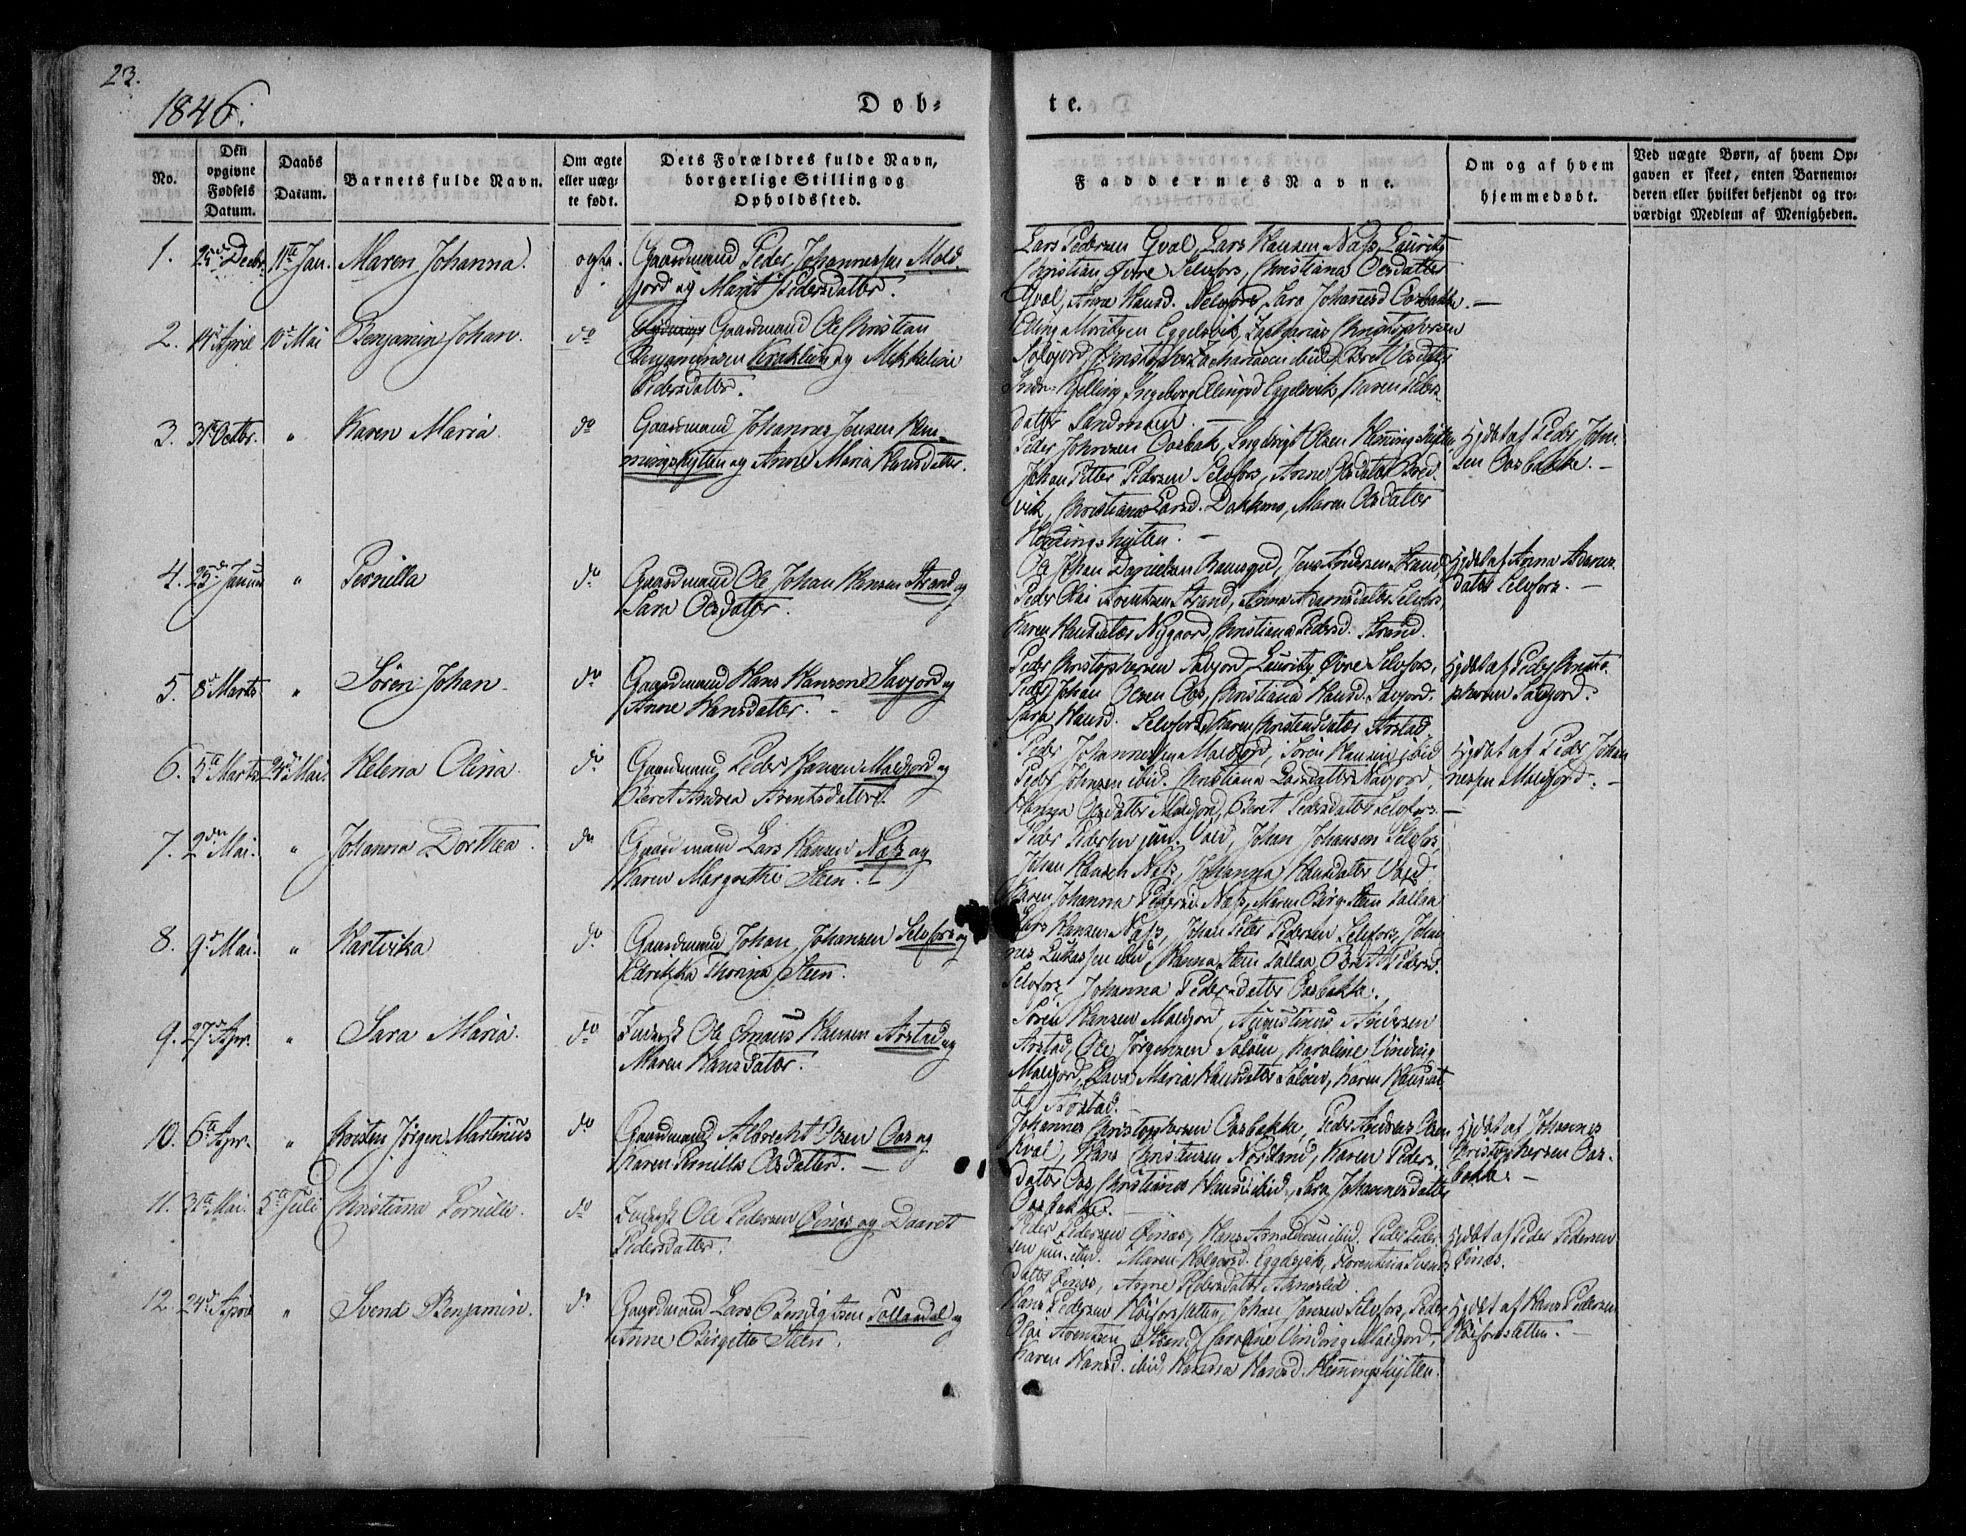 23.
1846.
Døb-
te.
No.
Den opgivne Fødsels Datum.
Daabs Datum.
Barnets fulde Navn.
Om ægte eller uæg-te født.
Dets Forældres fulde Navn, borgerlige Stilling og Opholdssted.
Faddernes Navne.
Om og af hvem hjemmedøbt.
Ved uægte Børn, af hvem Op-
gaven er skeet, enten Barnemo-
deren eller hvilket bekjendt og tro-
værdigt Medlem af Menigheden.
1. 25de Decbr. 11te Jan. Maren Johanna. ægte. Gaardmand Peder Johannessen Mold-
fjord og Marit Pedersdatter.
Lars Pedersen Qval, Lars Hansen Næss, Lauritz
Christian Øvre Selvfors, Christiana Olsdatter
Qval, Anne Hansd. Selvfors, Sara Johannesd Oosbakke. —
2. 14de April 10de Mai Benjamin Johan. do Gaardmand Ole Christian
Benjaminsen og Mekkeline
Pedersdatter.
Elling Eggesvik, Zacharias Christophersen
Soløfjord, Christopher Zachariasen ibid, Beret Olsdatter
Kjelling, Ingeborg Ellingsd Eggesvik, Karen Peders-
datter Sandmoen. —
3. 31te Octbr. " Karen Maria. do Gaardmand Johannes Jensen Hem-
mingshytten og Anne Maria Hansdatter.
Peder Johnsen Oosbak, Ingebrigt Olsen Hemmingshytten,
Johan Petter Pedersen Selvfors, Anne Olsdatter Bred-
vik, Christiana Larsd. Dokkmo, Maren Olsdatter
Hemmingshytten. —
Hjdøbt af Peder John-
sen Oosbakke. —
4. 25de Januar " Pernilla do Gaardmand Ole Johan Hansen Strand og
Sara Olsdatter.
Ole Johan Danielsen, Jens Andersen Strand,
Peder Olai Arentzen Strand, Anna Adamsdatter Selvfors,
Karen Hansdatter Nygaard, Christiana Pedersd. Strand.
Hjdøbt af Anna Adams-
datter Selvfors. —
5. 8de Marts " Søren Johan. do Gaardmand Hans Hansen Savjord og
Anne Hansdatter. —
Peder Christophersen Savjord, Lauritz Øvre Selvfors,
Peder Johan Olsen Oos, Christiana Hansd. Savjord,
Sara Hansd. Selvfors, Karen Christensdatter Arstad.
Hjdøbt af Peder Christo-
phersen Savjord.
6. 5te Marts 24de Mai. Helena Olina. do Gaardmand Peder Hansen Molfjord og
Beret Andrea Arentsdatter.
Peder Johannessen Molfjord, Søren Hansen ibid
Peder Johnsen ibid. Christiana Larsdatter Navjord,
Hanna Olsdatter Molfjord, Beret Pedersdatter Selvfors. —
Hjdøbt af Peder Johan-
nessen Molfjord. —
7. 2den Mai. " Johanna Dorthea. do Gaardmand Lars Hansen Næss og
Karen Margrethe Steen.
Peder Pedersen jun. Vald, Johan Johansen Selvfors,
Johan Hansen Næss, Johanna Hansdatter Vold,
Karen Johanna Pedersen Næss, Maren Birg. Steen Sallaa
8. 9de Mai. " Hartvika do Gaardmand Johan Johansen Selvfors og
Edvikka Thorina Steen.
Lars Hansen Næss, Johan Peter Pedersen Selvfors, Johan-
nes Lukassen ibid, Hanna Steen Sallaa, Beret Pedersd.
Selvfors, Johanna Pedersdatter Oosbakke.
9. 27de Apr. " Sara Maria. do Inderst Ole Emaus Hansen Arstad og
Maren Hansdatter.
Søren Hansen Molfjord, Augustinus Andersen
Arstad, Ole Jørgensen Soløen, Karoline Vinding
Molfjord, Sara Maria Hansdatter Soløen, Karen Hansdat-
ter Arstad.
10. 6te Apr. " Christen Jørgen Martinus do Gaardmand Albrecht Olsen Oos og
Karen Pernilla Olsdatter. —
Johannes Christophersen Oosbakke, Peder Andreas Olsen
Kval, Hans Christensen Nordland, Karen Peders-
datter Oos, Christiana Hansd ibid, Sara Johannesdatter
Oosbakke.
Hjdøbt af Johannes
Christophersen Oos-
bakke. —
11. 31te Mai. 5te Juli Christiana Pernilla. do Inderst Ole Pedersen Øines og Daaret
Pedersdatter.
Peder Pedersen Øines, Hans Arnoldsen ibid. Peder Peder-
sen jun. ibid. Maren Holgersd. Eggesvik, Florentina Svends-
datter Øines, Anne Pedersdatter Arnestad
Hjdøbt af Peder Pedersen
Øines.
12. 24de April " Svend Benjamin. do Gaardmand Lars Bendigtsen Tollaadal og
Anne Birgitte Steen.
Hans Pedersen Høiforsletten, Johan Jansen Selvfors, Peder
Olai Arentzen Strand, Caroline Vinding Molfjord,
Karen Hansd. ibid, Hansd. Hemmingshytten.
Hjdøbt af Hans Pedersen
Høiforsletten. —